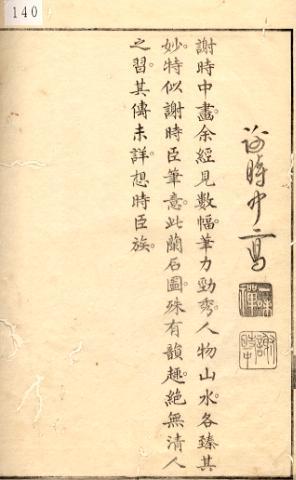 140
謝時中寫
謝時中
謝時中畫。余經見數幅。筆力勁秀。人物山水。各臻其
妙。特似謝時臣筆意。此蘭石圖。殊有韻趣。絕無清人
之習。其傳未詳。想時臣族。